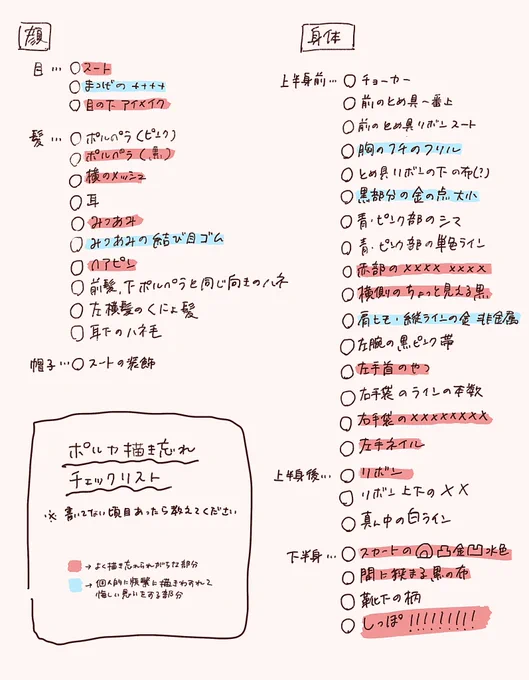 顔
目… ○ スート
○ まつげの++++
○ 目の下アイメイク
髪… ○ ポルペラ(ピンク)
○ ポルペラ(黒)
○ 横のメッシュ
○ 耳
○ みつあみ
○ みつあみの結び目ゴム
○ ヘアピン
○ 前髪、下ポルペラと同じ向きのハネ
○ 左横髪のくにょ髪
○ 耳下のハネ毛
帽子…○ スートの装飾
ポルカ描き忘れ
チェックリスト
※ 書いてない項目あったら教えてください
→よく描き忘れられがちな部分
→個人的に頻繁に描きわすれて
悔しい思いをする部分
身体
上半身前… ○ チョーカー
○ 前のとめ具一番上
○ 前のとめ具リボンスート
○ 胸のフチのフリル
○ とめ具リボンの下の布(?)
○ 黒部分の金の点 大小
○ 青・ピンク部のシマ
○ 青・ピンク部の単色ライン
○ 赤部の×××× ××××
○ 横側のちょっと見える黒
○ 肩ヒモ・縦ラインの金 非金属
○ 左腕の黒ピンク帯
○ 左手首のやつ
○ 右手袋のラインの本数
○ 右手袋の××××××××
○ 左手ネイル
上半身後… ○ リボン
○ リボン上下の××
○ 真ん中の白ライン
下半身… ○ スカートの金水色
○ 間に挟まる黒の布
○ 靴下の柄
○ しっぽ!!!!!!!!!